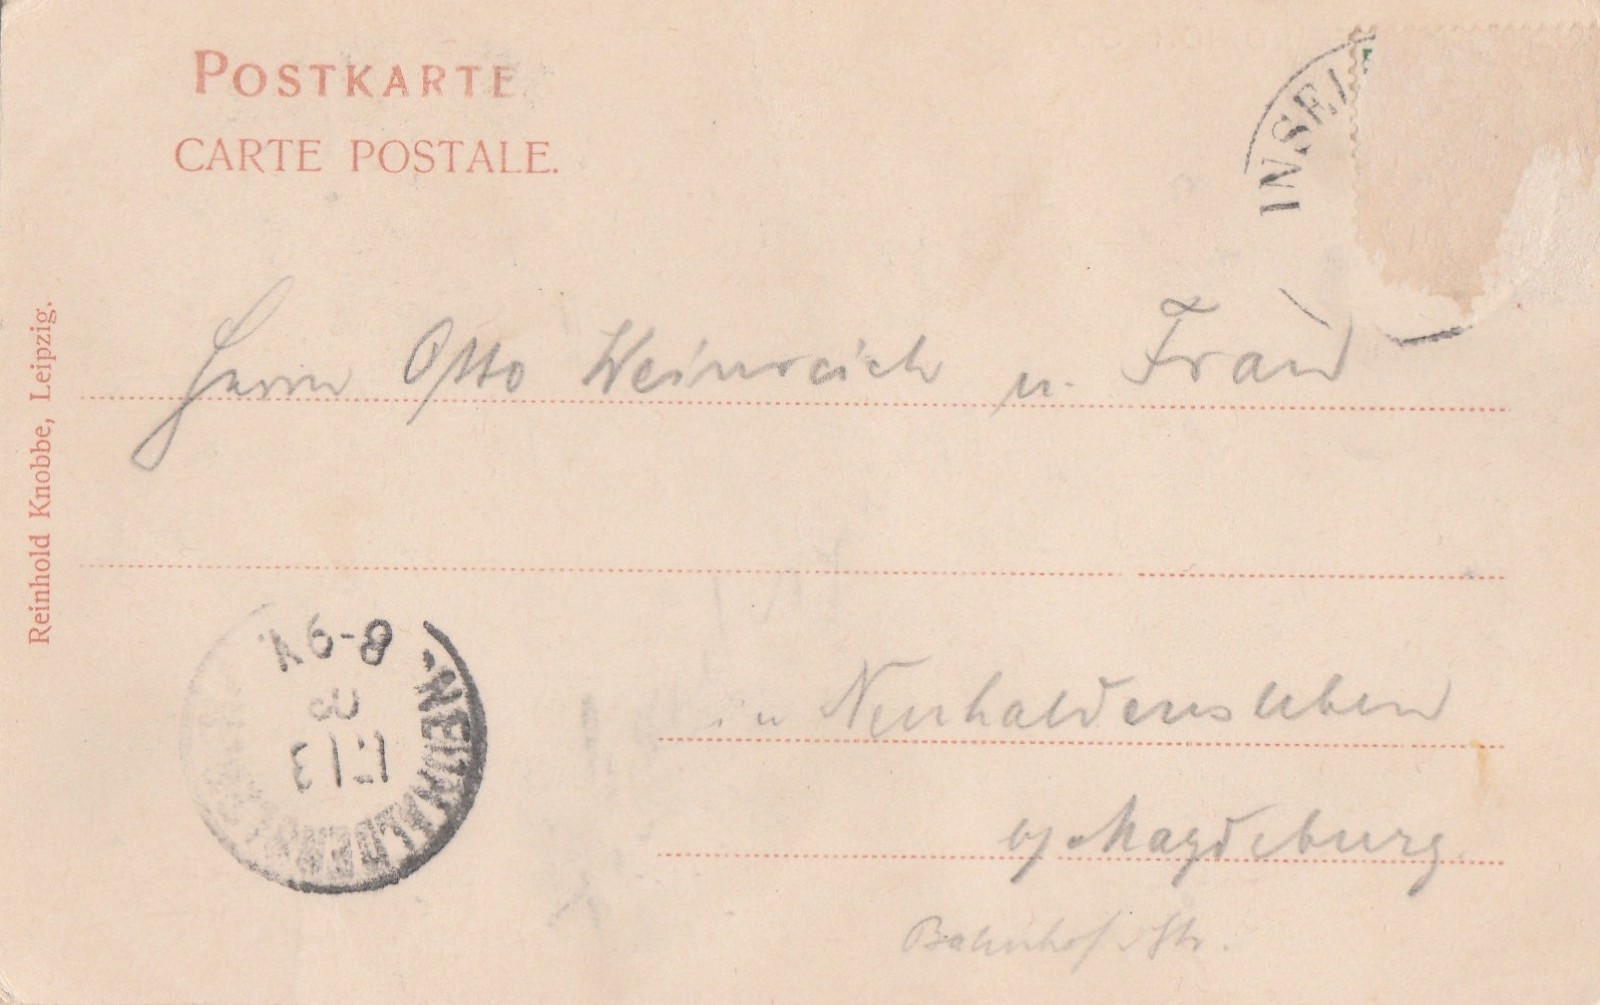 POSTKARTE
CARTE POSTALE.
INSEL
Reinhold Knobbe, Leipzig.
Herrn Otto Weinreich u. Frau
in Neuhaldensleben
b/ Magdeburg.
Bahnhof Str.
NEUHALDENSLEBEN
8-9V.